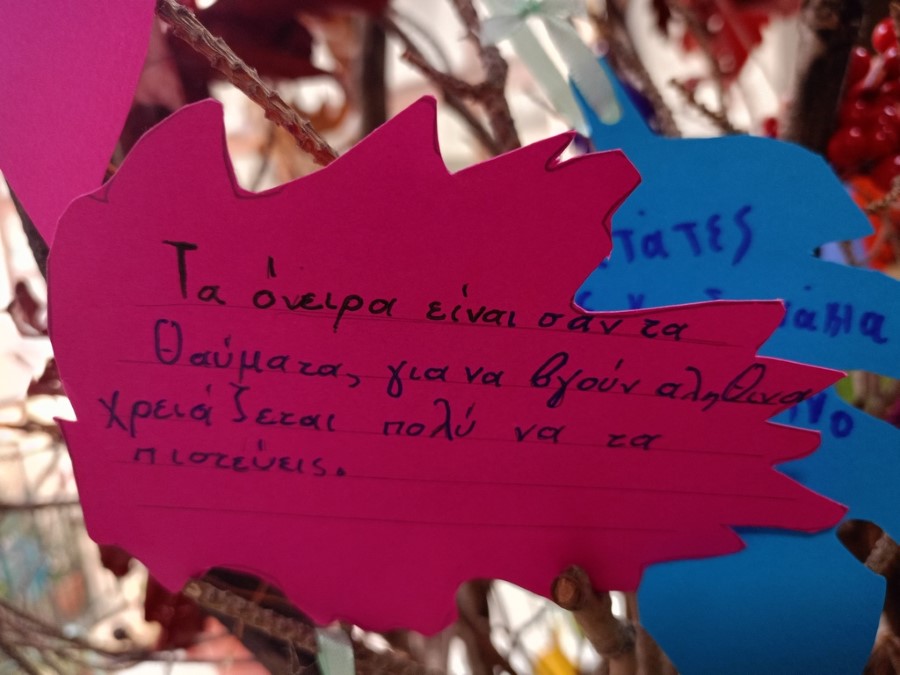 Τα όνειρα είναι σαν τα
θαύματα, για να βγούν αληθινά
χρειάζεται πολύ να τα
πιστεύεις.